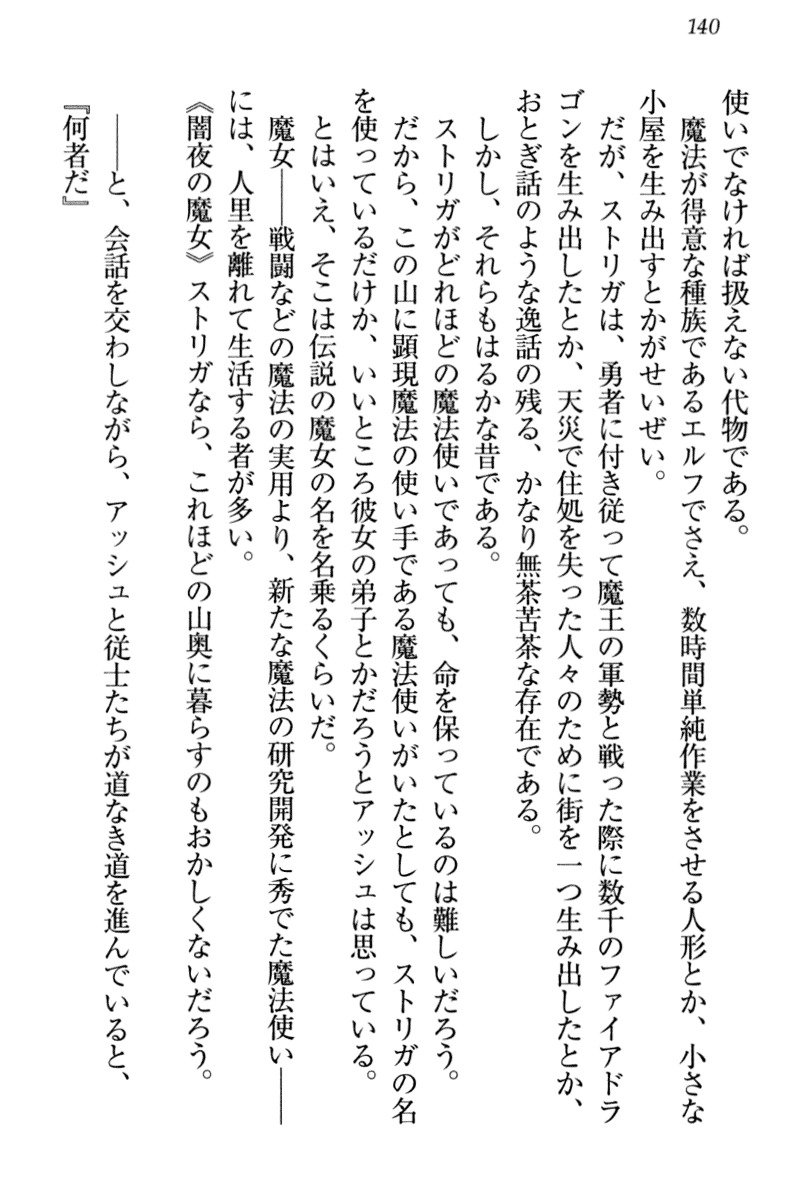 140
使いでなければ扱えない代物である。
魔法が得意な種族であるエルフでさえ、数時間単純作業をさせる人形とか、小さな
小屋を生み出すとかがせいぜい。
だが、ストリガは、勇者に付き従って魔王の軍勢と戦った際に数千のファイアドラ
ゴンを生み出したとか、天災で住処を失った人々のために街を一つ生み出したとか、
おとぎ話のような逸話の残る、かなり無茶苦茶な存在である。
しかし、それらもはるかな昔である。
ストリガがどれほどの魔法使いであっても、命を保っているのは難しいだろう。
だから、この山に顕現魔法の使い手である魔法使いがいたとしても、ストリガの名
を使っているだけか、いいところ彼女の弟子とかだろうとアッシュは思っている。
とはいえ、そこは伝説の魔女の名を名乗るくらいだ。
魔女――戦闘などの魔法の実用より、新たな魔法の研究開発に秀でた魔法使い――
には、人里を離れて生活する者が多い。
《闇夜の魔女》ストリガなら、これほどの山奥に暮らすのもおかしくないだろう。
――と、会話を交わしながら、アッシュと従士たちが道なき道を進んでいると、
『何者だ』